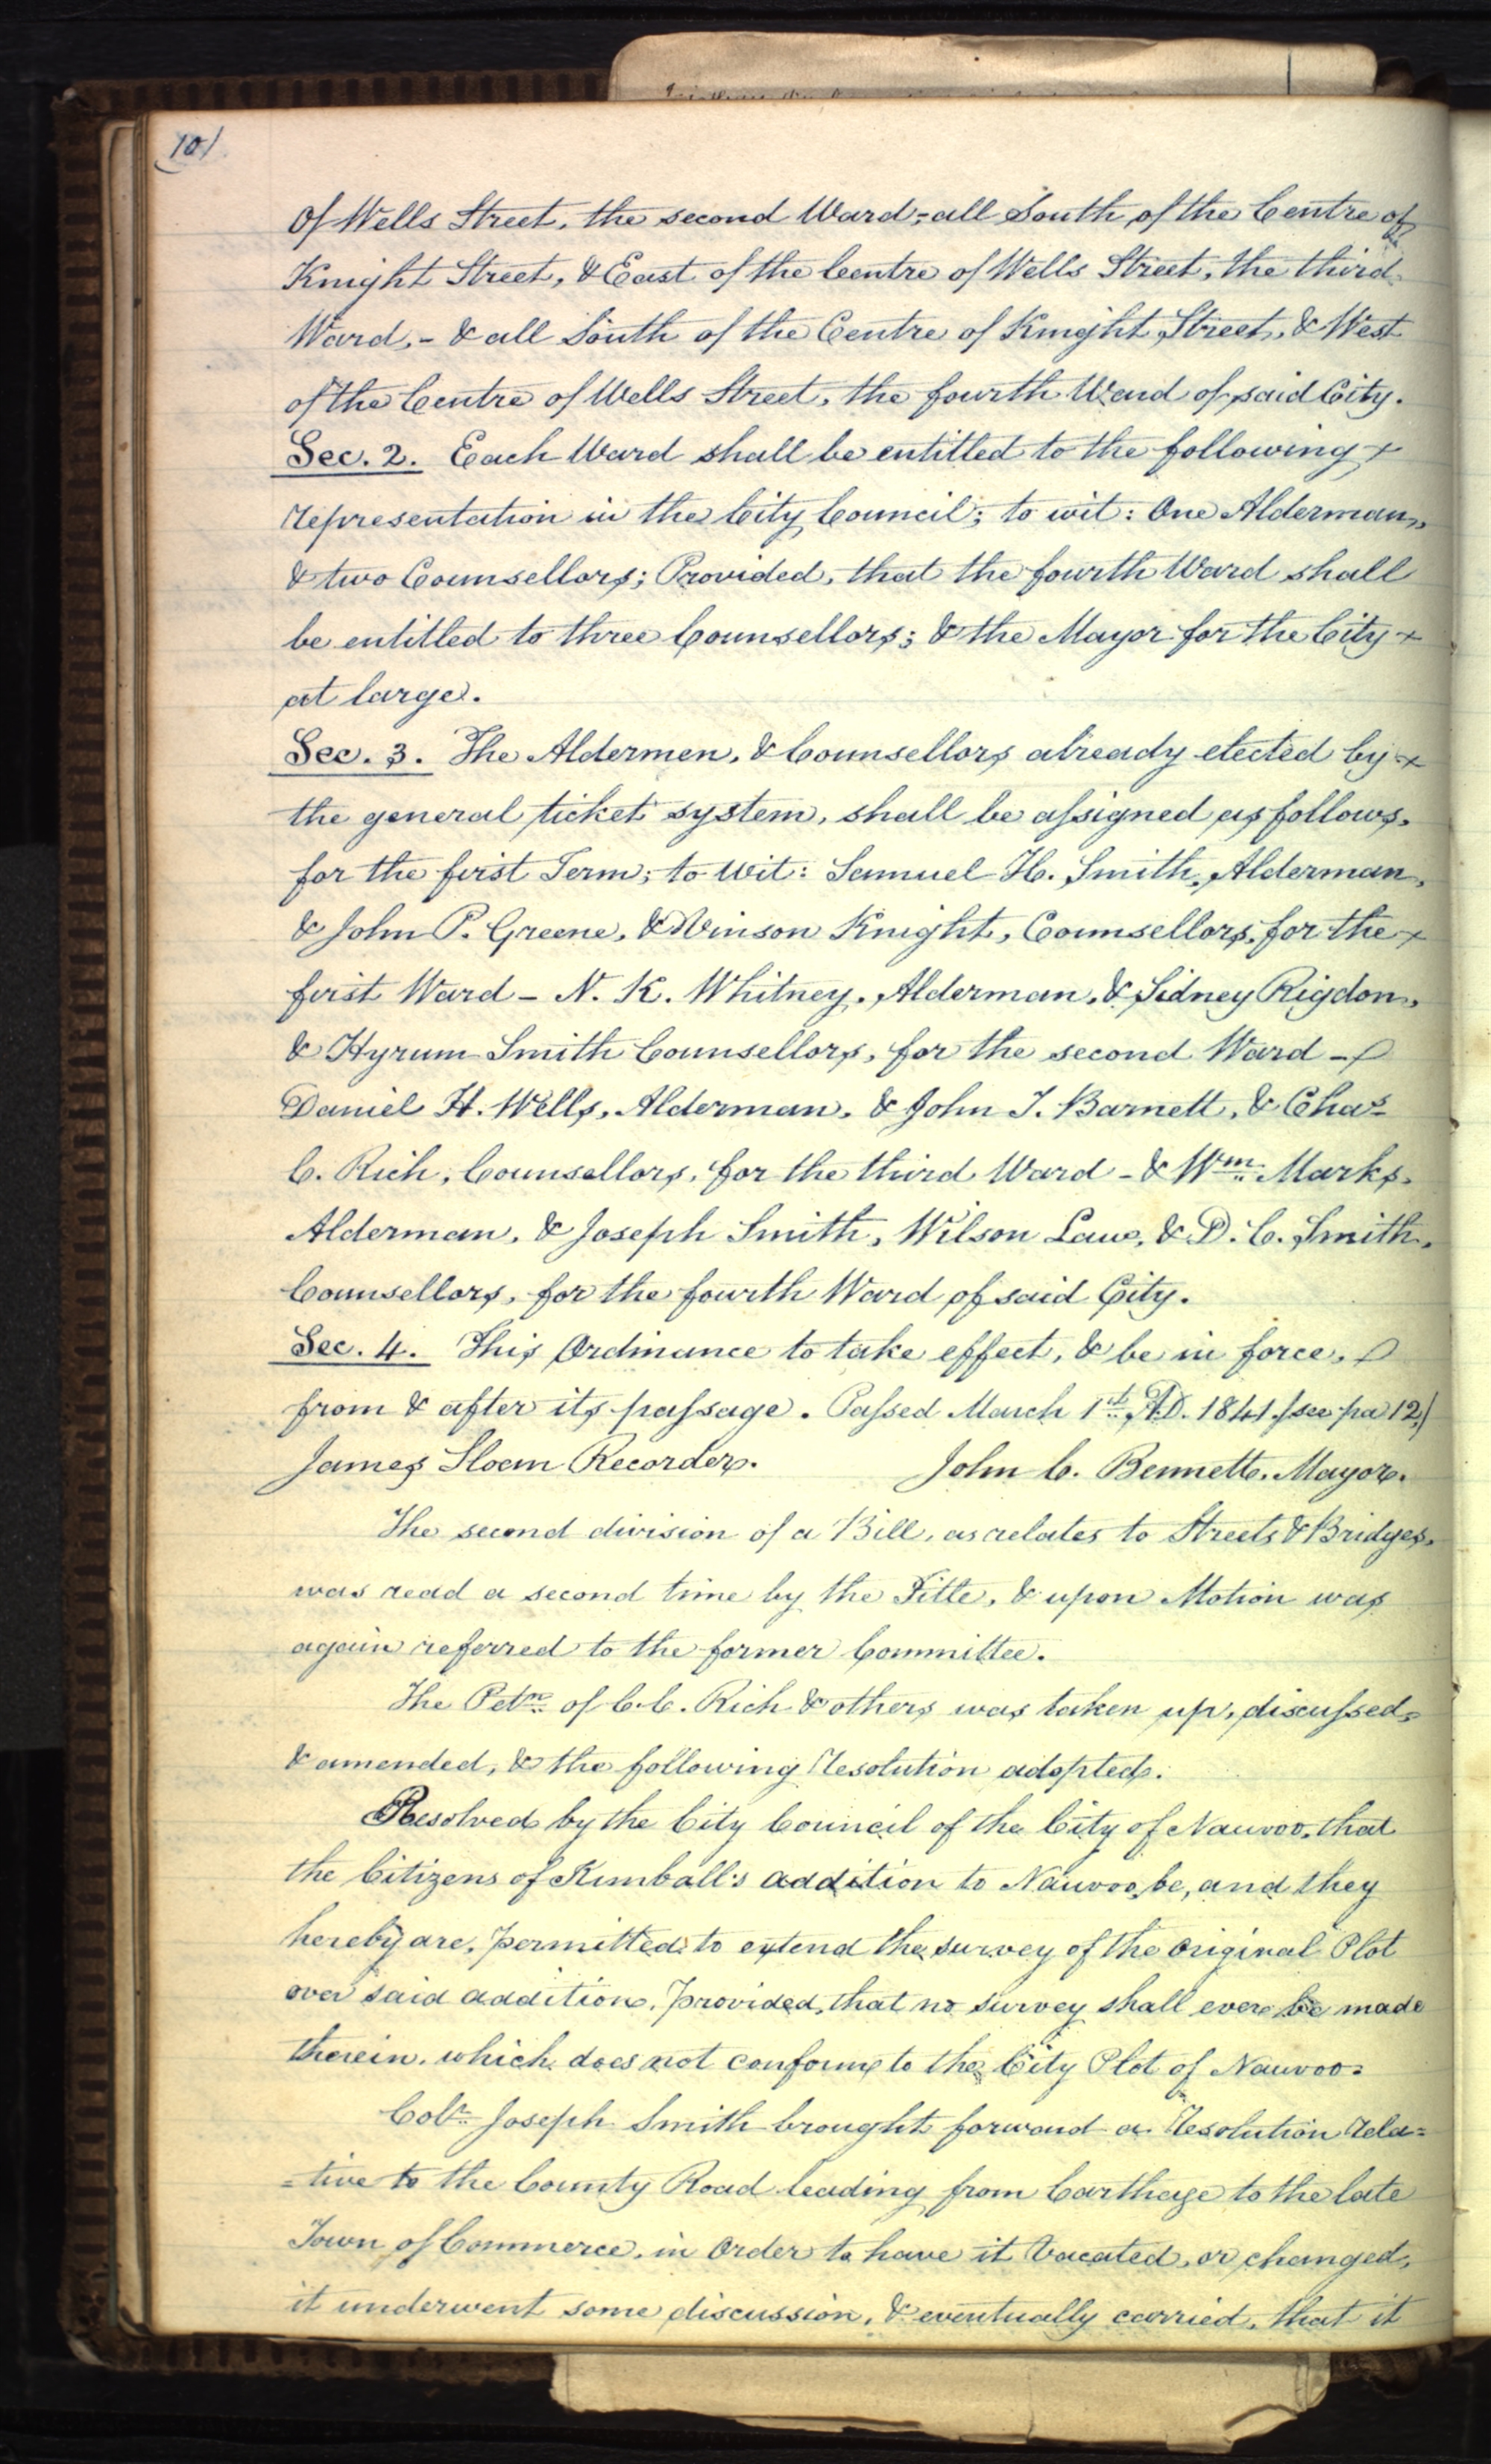 10
of Wells Street, the second Ward;- all South of the Centre of
Knight Street, & East of the Centre of Wells Street, the third
Ward,- & all South of the Centre of Knight Street, & West
of the Centre of Wells Street, the fourth Ward of said City.
Sec. 2. Each Ward shall be entitled to the following
representation in the City Council; to wit: One Alderman,
& two Counsellors; Provided, that the fourth Ward shall
be entitled to three Counsellors; & the Mayor for the City
at large.
Sec. 3. The Aldermen, & Counsellors already elected by
the general ticket system, shall be assigned as follows,
for the first Term; to wit: Samuel H. Smith, Alderman,
& John P. Greene, & Vinson Knight, Counsellors, for the
first Ward - N. K. Whitney, Alderman, & Sidney Rigdon,
& Hyrum Smith Counsellors, for the second Ward -
Daniel H. Wells, Alderman, & John T. Barnett, & Chas
C. Rich, Counsellors, for the third Ward - & Wm. Marks,
Alderman, & Joseph Smith, Wilson Law, & D. C. Smith,
Counsellors, for the fourth Ward of said City.
Sec. 4. This Ordinance to take effect, & be in force,
from & after its passage. Passed March 1st, A.D. 1841. (see pa 12,)
James Sloan Recorder. John C. Bennett, Mayor.
The second division of a Bill, as relates to Streets & Bridges,
was read a second time by the Title, & upon Motion was
again referred to the former Committee.
The Petn. of C. C. Rich & others was taken up, discussed,
& amended, & the following Resolution adopted.
Resolved by the City Council of the City of Nauvoo, that
the Citizens of Kimball's addition to Nauvoo, be, and they
hereby are, permitted to extend the survey of the original Plot
over said addition, provided, that no survey shall ever be made
therein, which does not conform to the City Plot of Nauvoo.
Colr. Joseph Smith brought forward a Resolution rela=
=tive to the County Road leading from Carthage to the late
Town of Commerce, in Order to have it Vacated, or changed,
it underwent some discussion, & eventually carried, that it